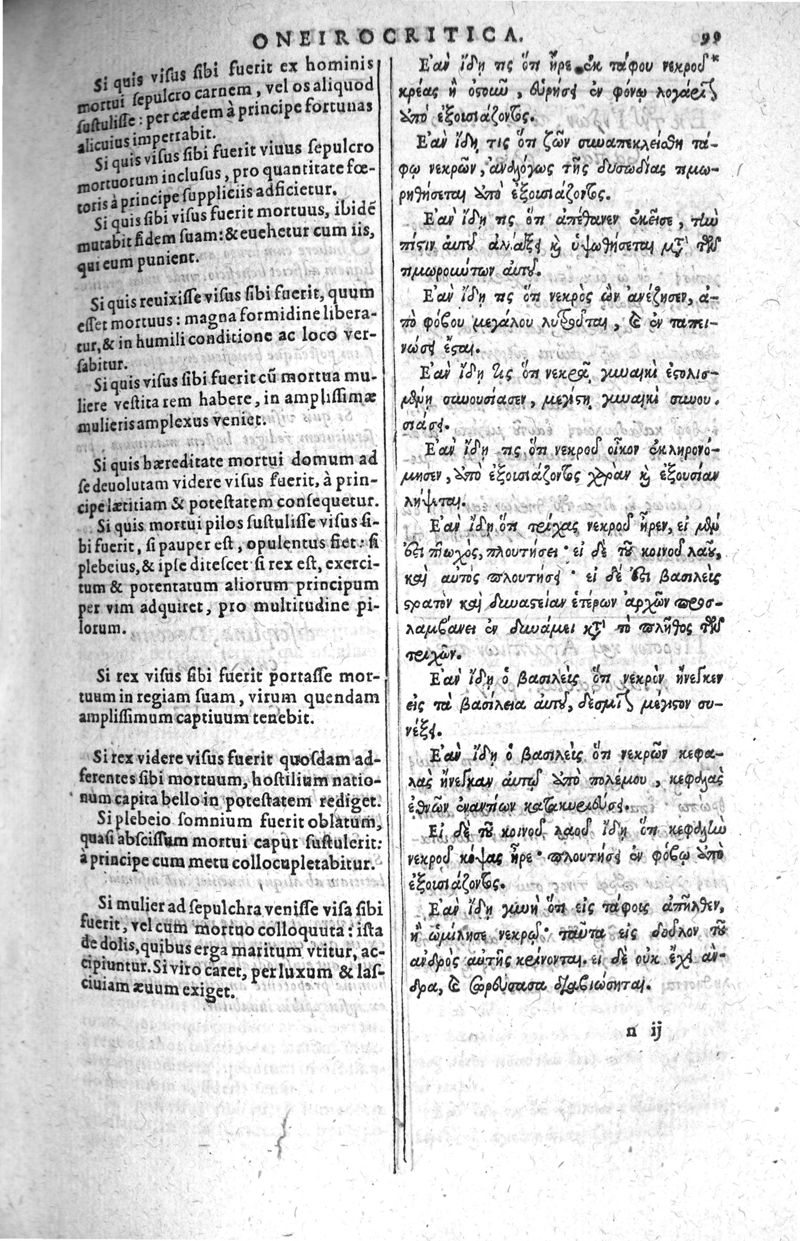 ONEIROCRITICA. 99
Si quis visus sibi fuerit ex hominis
mortui sepulcro carnem, vel os aliquod
sustulisse: per cædem à principe fortunas
alicuius impetrabit.
Si quis visus sibi fuerit viuus sepulcro
mortuorum inclusus, pro quantitate fœ-
toris à principe suppliciis adficietur.
Si quis sibi visus fuerit mortuus, ibidē
mutabit fidem suam: & euehetur cum iis,
qui eum punient.
Si quis reuixisse visus sibi fuerit, quum
esset mortuus: magna formidine libera-
tur, & in humili conditione ac loco ver-
sabitur.
Si quis visus sibi fuerit cū mortua mu-
liere vestita rem habere, in amplissimæ
mulieris amplexus veniet.
Si quis hæreditate mortui domum ad
se deuolutam videre visus fuerit, à prin-
cipe lætitiam & potestatem consequetur.
Si quis mortui pilos sustulisse visus si-
bi fuerit, si pauper est, opulentus fiet: si
plebeius, & ipse ditescet: si rex est, exerci-
tum & potentatum aliorum principum
per vim adquiret, pro multitudine pi-
lorum.
Si rex visus sibi fuerit portasse mor-
tuum in regiam suam, virum quendam
amplissimum captiuum tenebit.
Si rex videre visus fuerit quosdam ad-
ferentes sibi mortuum, hostilium natio-
num capita bello in potestatem rediget.
Si plebeio somnium fuerit oblatum,
quasi abscissum mortui caput sustulerit:
à principe cum metu collocupletabitur.
Si mulier ad sepulchra venisse visa sibi
fuerit, vel cum mortuo colloquuta: ista
de dolis, quibus erga maritum vtitur, ac-
cipiuntur. Si viro caret, per luxum & las-
ciuiam æuum exiget.
Εὰν ἴδη τις ὅτι ἦρε ἐκ τάφου νεκροῦ*
κρέας ἢ ὀστοῦν, εὑρήσει ἐν φόνῳ λογάριον
ὑπὸ ἐξουσιάζοντος.
Εὰν ἴδη τις ὅτι ζῶν συναπεκλείσθη τά-
φῳ νεκρῶν, ἀναλόγως τῆς δυσωδίας τιμω-
ρηθήσεται ὑπὸ ἐξουσιάζοντος.
Εὰν ἴδη τις ὅτι ἀπέθανεν ἐκεῖσε, τὴν
πίστιν αὐτοῦ ἀλλάξει καὶ ὑψωθήσεται μετὰ τῶν
τιμωρούντων αὐτοῦ.
Εὰν ἴδη τις ὅτι νεκρὸς ὢν ἀνέζησεν, ἀ-
πὸ φόβου μεγάλου λυτροῦται, καὶ ἐν ταπει-
νώσει ἔσται.
Εὰν ἴδη τις ὅτι νεκρᾷ γυναικὶ ἐστολισ-
μένῃ συνουσίασεν, μεγίστῃ γυναικὶ συνου-
σιάσει.
Εὰν ἴδη τις ὅτι νεκροῦ οἶκον ἐκληρονό-
μησεν, ὑπὸ ἐξουσιάζοντος χαρὰν καὶ ἐξουσίαν
λήψεται.
Εὰν ἴδη ὅτι τρίχας νεκροῦ ἦρεν, εἰ μὲν
ἔστι πτωχὸς, πλουτήσει· εἰ δὲ τοῦ κοινοῦ λαοῦ,
καὶ αυτος πλουτήσει· εἰ δέ ἐστι βασιλεὺς
στρατὸν καὶ δυναστείαν ἑτέρων ἀρχῶν προσ-
λαμβάνει ἐν δυνάμει κατὰ τὸ πλῆθος τῶν
τριχῶν.
Εὰν ἴδη ὁ βασιλεὺς ὅτι νεκρὸν ἤνεγκεν
εἰς τὰ βασίλεια αὐτοῦ, δεσμίον μέγιστον συ-
νέξει.
Εὰν ἴδη ὁ βασιλεὺς ὅτι νεκρῶν κεφα-
λὰς ἤνεγκαν αὐτῷ ὑπὸ πολέμου, κεφαλὰς
ἐθνῶν ἐναντίων κατακυριεύσει.
Εἰ δὲ τοῦ κοινοῦ λαοῦ ἴδη ὅτι κεφαλὴν
νεκροῦ κόψας ἦρε· πλουτήσει ἐν φόβῳ ὑπὸ
ἐξουσιάζοντος.
Εὰν ἴδη γυνὴ ὅτι εἰς τάφους ἀπῆλθεν,
ἢ ὡμίλησε νεκρῷ· ταῦτα εἰς δόλον τοῦ
ἀνδρὸς αὐτῆς κρίνονται. εἰ δὲ οὐκ ἔχει ἄν-
δρα,
n ij